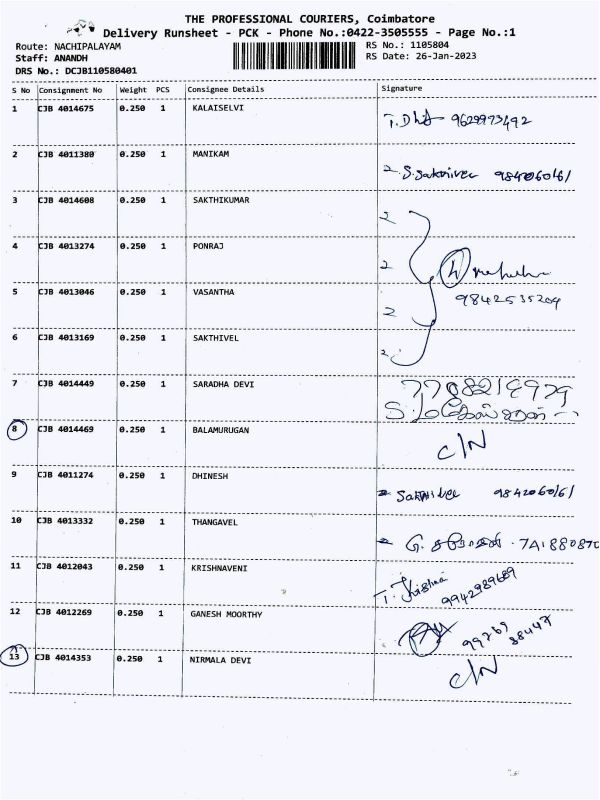 THE PROFESSIONAL COURIERS, Coimbatore
Delivery Runsheet - PCK - Phone No.:0422-3505555 - Page No.:1
Route: NACHIPALAYAM
RS No.: 1105804
Staff: ANANDH
RS Date: 26-Jan-2023
DRS No.: DCJB110580401
S No Consignment No Weight PCS Consignee Details Signature
1 CJB 4014675 0.250 1 KALAISELVI 9629973492
2 CJB 4011380 0.250 1 MANIKAM S. Sakthivel 984206016/
3 CJB 4014608 0.250 1 SAKTHIKUMAR
4 CJB 4013274 0.250 1 PONRAJ
5 CJB 4013046 0.250 1 VASANTHA 9842535209
6 CJB 4013169 0.250 1 SAKTHIVEL
7 CJB 4014449 0.250 1 SARADHA DEVI 7708219979
8 CJB 4014469 0.250 1 BALAMURUGAN C/N
9 CJB 4011274 0.250 1 DHINESH Sakthivel 984206016/
10 CJB 4013332 0.250 1 THANGAVEL
11 CJB 4012043 0.250 1 KRISHNAVENI T. Krishna 9942989689
12 CJB 4012269 0.250 1 GANESH MOORTHY 99769 88447
13 CJB 4014353 0.250 1 NIRMALA DEVI C/N